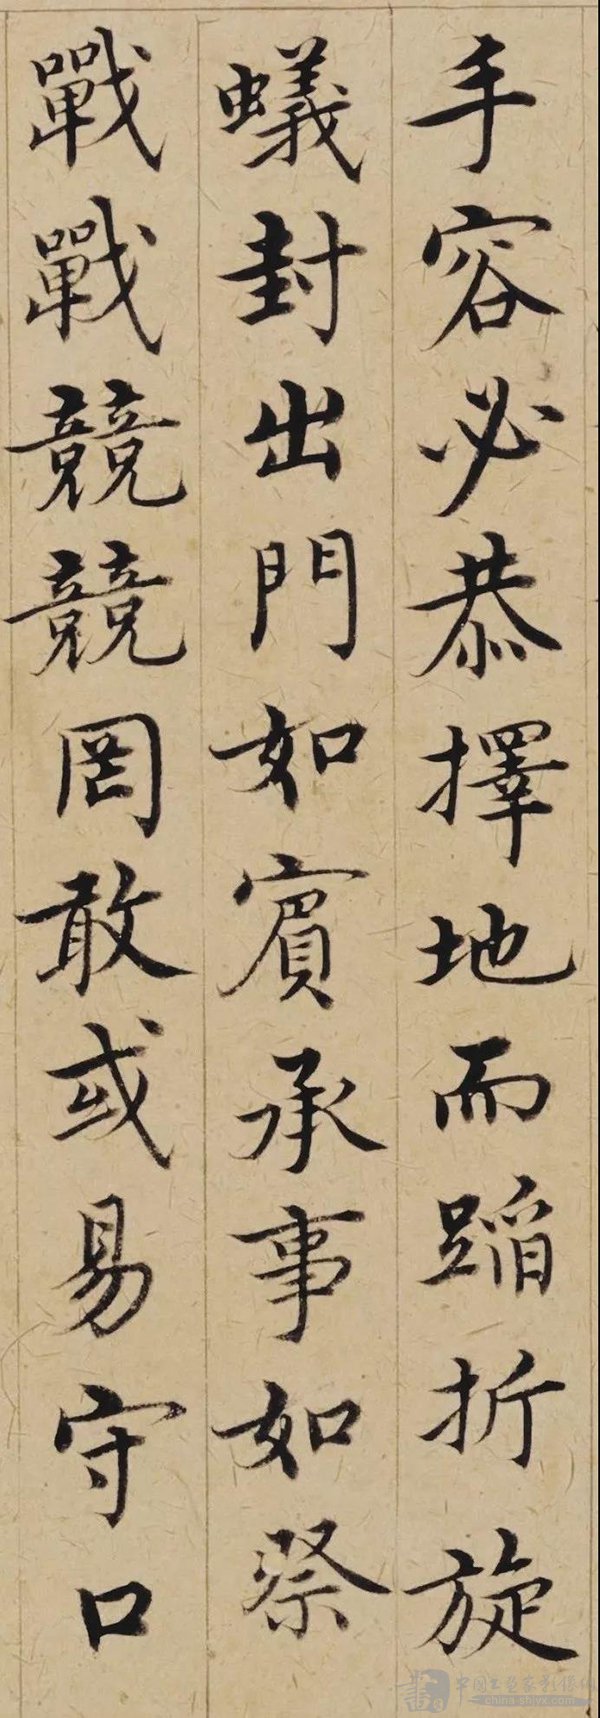 手容必恭擇地而蹈折旋
蟻封出門如賓承事如祭
戰戰兢兢罔敢或易守口
中国书画家影像网
china-shjyx.com